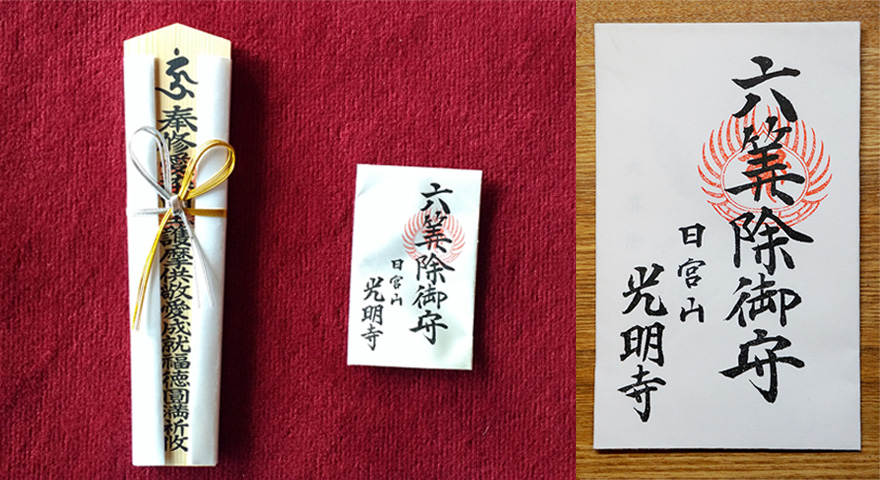 奉修
護摩供敬愛成就福徳圓満祈攸
六筭除御守
日宮山
光明寺
六筭除御守
日宮山
光明寺